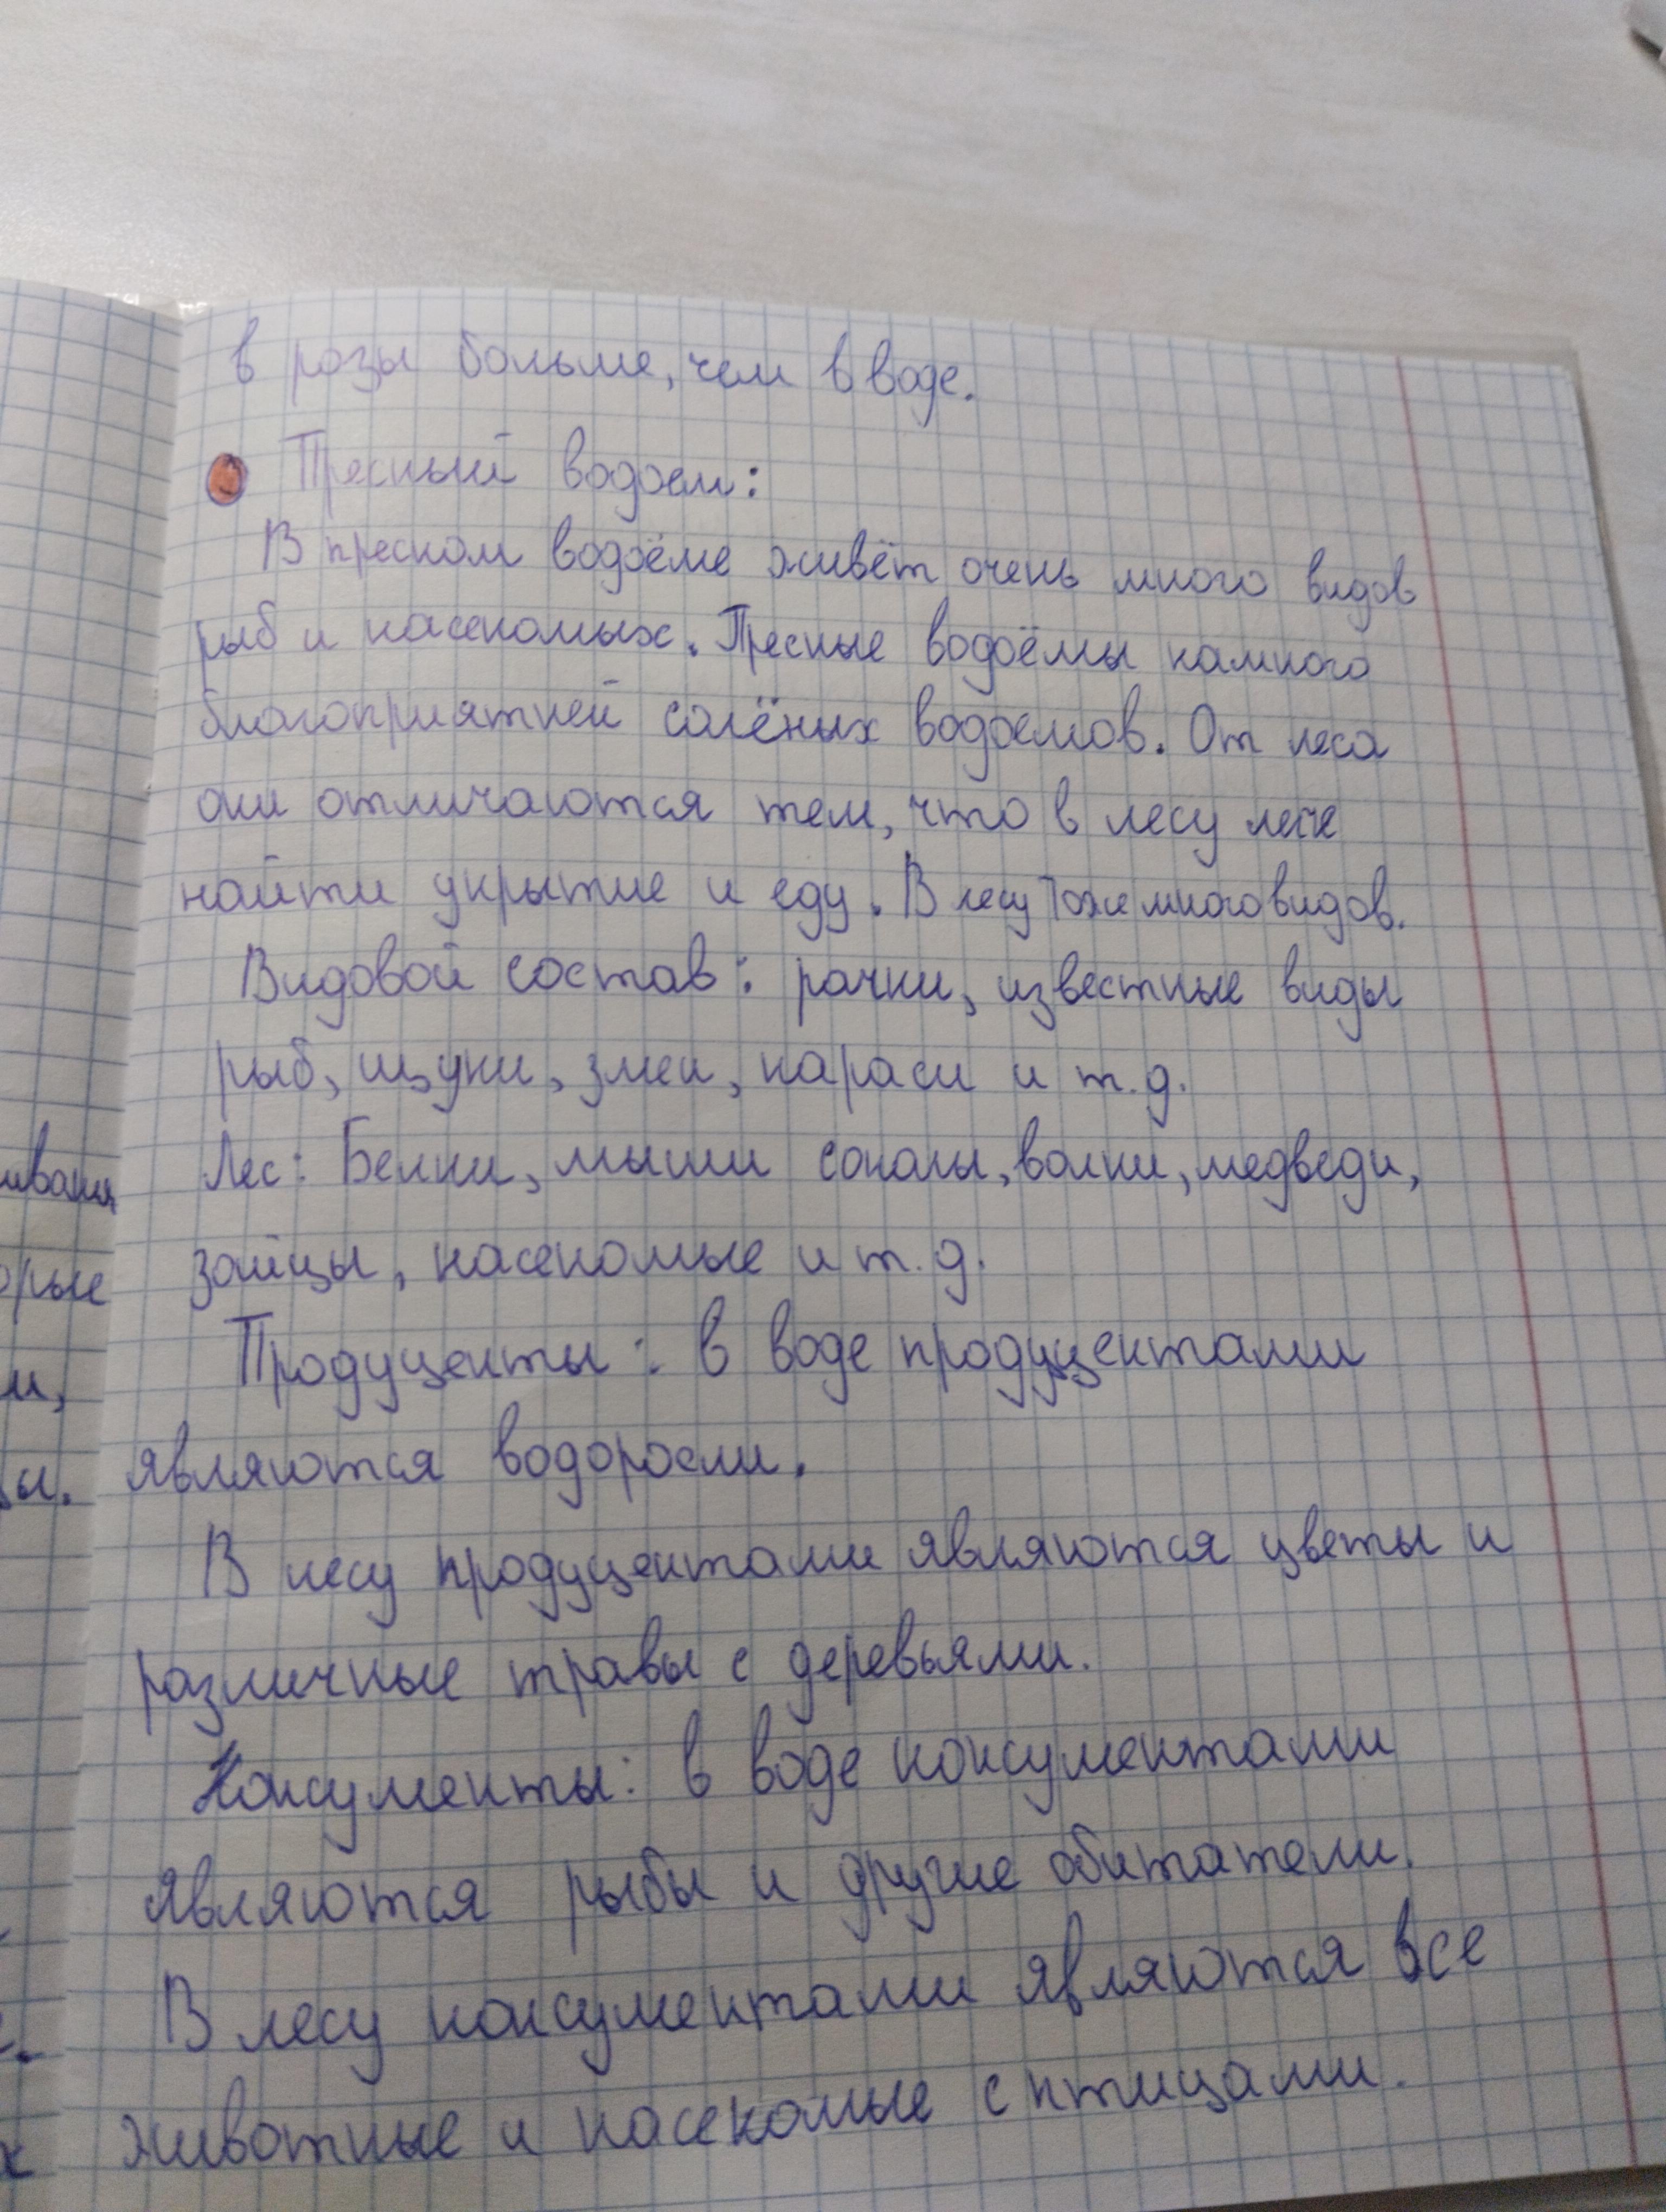 в розы больше, чем в воде.
Пресный водоем:
В пресном водоёме живёт очень много видов
рыб и насекомых. Пресные водоёмы намного
благоприятней солёных водоемов. От леса
они отличаются тем, что в лесу легче
найти укрытие и еду. В лесу тоже много видов.
Видовой состав: рачки, известные виды
рыб, щуки, змеи, караси и т.д.
Лес: Белки, мыши соколы, волки, медведи,
зайцы, насекомые и т.д.
Продуценты: в воде продуцентами
являются водоросли.
В лесу продуцентами являются цветы и
различные травы с деревьями.
Консументы: в воде консументами
являются рыбы и другие обитатели.
В лесу консументами являются все
животные и насекомые с птицами.